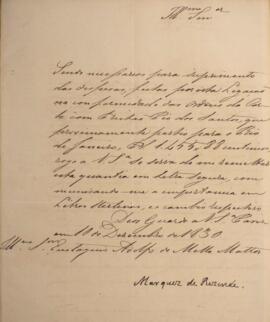 Illmo Senr
Sendo necessario para suprimento
das despesas, feitas por esta Legação
na conformidade das ordens da Corte
com Freitas Pio dos Santos, que
proximamente partio para o Rio
de Janeiro, 1.455,88 centimos,
rogo a V. Sa se sirva de me remetter
esta quantia em letra segura, com
municando-me a importancia em
Libras Sterlinas, e o cambio respectivo
Deos Guarde a V. Sa
em 10 de Dezembro de 1830
Eustaquio Adolfo de Mello Mattos
Marquez de Rezende.